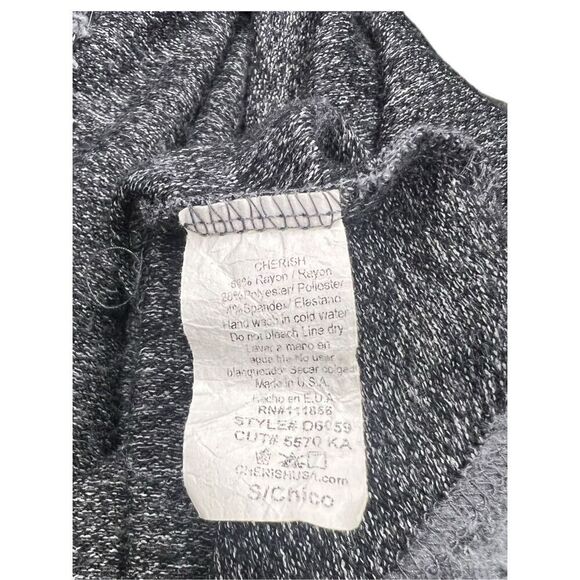 CHERISH
Rayon / Rayon
Polyester/ Poliester
4% Spandex / Elastano
Hand wash in cold water
Do not bleach Line dry
Lavar a mano en
agua fria No usar
blanqueador Secar colgado
Made in U.S.A.
Hecho en E.U.A
RN#111856
STYLE# D6059
CUT# 5570 KA
CHERISHUSA.com
S/Chico